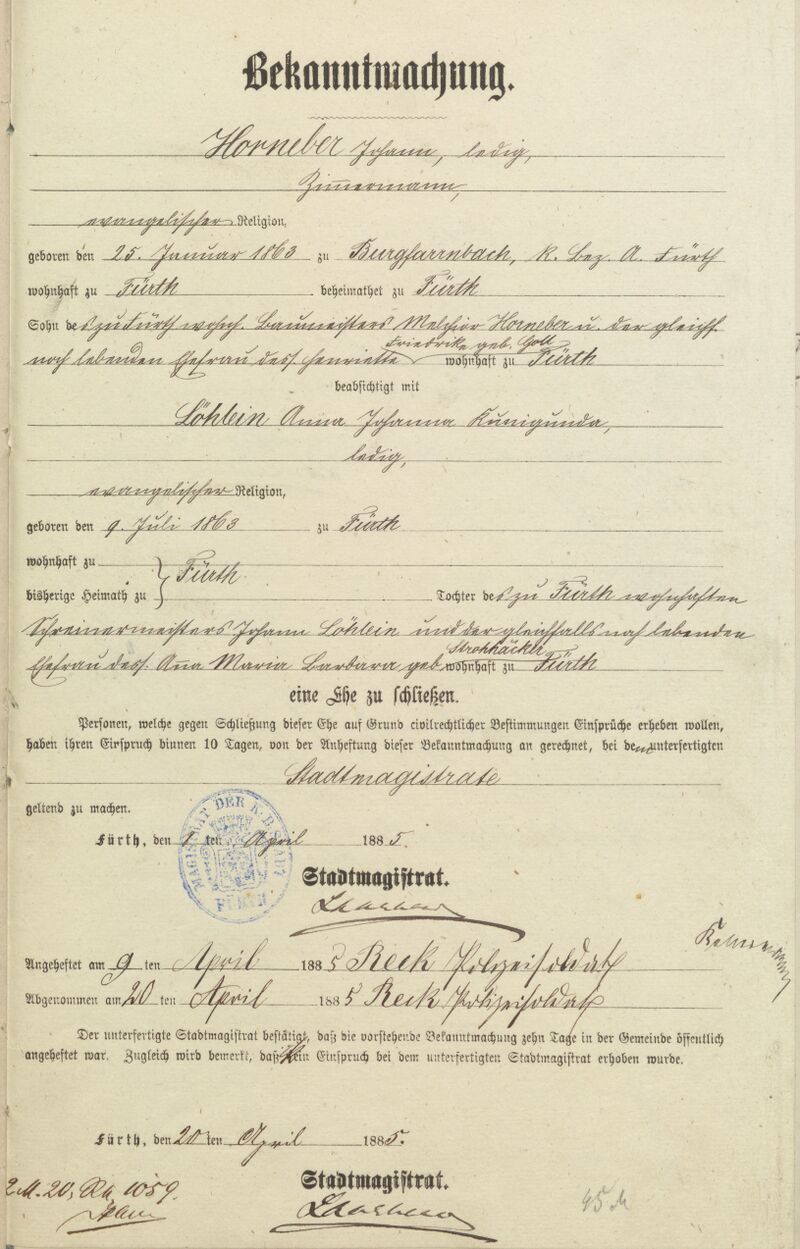 Bekanntmachung.
Horneber Johann, ledig,
Zimermann,
evangelischer Religion,
geboren den 25. Januar 1863 zu Burgfarrnbach, k. Bez. A. Fürth
wohnhaft zu Fürth beheimathet zu Fürth
Sohn des zu Fürth wohnh. Baumeisters Melchior Horneber u. der gleichf.
noch lebenden Ehefrau dess. Henriette Friedrike geb. Goll wohnhaft zu Fürth
beabsichtigt mit
Löhlein Anna Johanna Kunigunda,
ledig,
evangelischer Religion,
geboren den 9. Juli 1863 zu Fürth
wohnhaft zu
Fürth
bisherige Heimath zu Tochter des zu Fürth wohnhaften
Schreinermeisters Johann Löhlein und der gleichfalls noch lebenden
Ehefrau dess. Ana Maria Barbara geb. Strohhäckler wohnhaft zu Fürth
eine Ehe zu schließen.
Personen, welche gegen Schließung dieser Ehe auf Grund civilrechtlicher Bestimmungen Einsprüche erheben wollen,
haben ihren Einspruch binnen 10 Tagen, von der Anheftung dieser Bekanntmachung an gerechnet, bei dem unterfertigten
Stadtmagistrate
geltend zu machen.
MAGISTRAT DER K. B. STADT FÜRTH
Fürth, den 9ten April 1885.
Stadtmagistrat.
Angeheftet am 9ten April 1885 Reck Polizeisoldat
Abgenommen am 20ten April 1885 Reck Polizeisoldat
Der unterfertigte Stadtmagistrat bestätigt, daß die vorstehende Bekanntmachung zehn Tage in der Gemeinde öffentlich
angeheftet war. Zugleich wird bemerkt, daß kein Einspruch bei dem unterfertigten Stadtmagistrat erhoben wurde.
Fürth, den 20ten April 1885.
Stadtmagistrat.
1059.